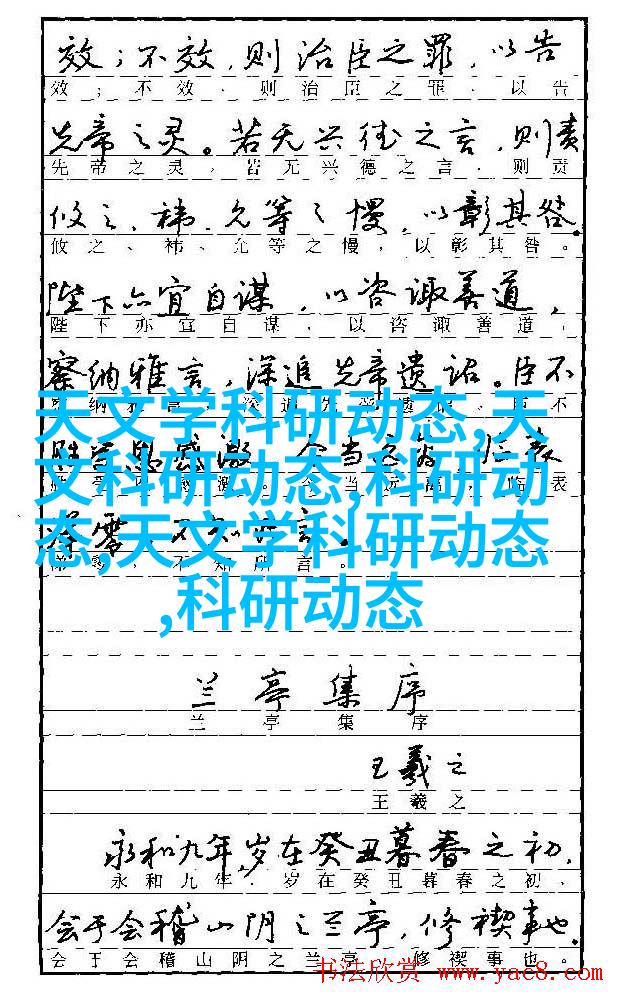 效；不效，则治臣之罪，以告
效；不效、则治臣之罪、以告
先帝之灵。若无兴德之言，则责
先帝之灵，若无兴德之言、则责
攸之、祎、允等之慢，以彰其咎。
攸之、祎、允等之慢，以彰其咎。
陛下亦宜自谋，以咨诹善道，
陛下亦宜自谋，以咨诹善道，
察纳雅言，深追先帝遗诏。臣不
天文学科研动态,天
文科研动态,科研动
态,天文学科研动态
,科研动态
不知所言。
兰亭集序
兰亭集序
王羲之
王羲之
永和九年,岁在癸丑暮春之初,
永和九年.岁在癸丑暮春之初、
会于会稽山阴之兰亭，修禊事也。
会于会稽山阴之兰亭，修禊事也。
书法欣赏 www.yac8.com